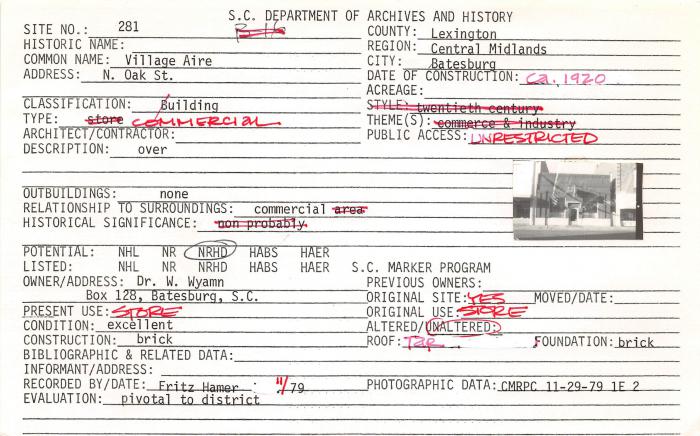 S.C. DEPARTMENT OF ARCHIVES AND HISTORY
SITE NO.: 281
COUNTY: Lexington
HISTORIC NAME:
REGION: Central Midlands
COMMON NAME: Village Aire
CITY: Batesburg
ADDRESS: N. Oak St.
DATE OF CONSTRUCTION: Ca. 1920
ACREAGE:
CLASSIFICATION: Building
STYLE: twentieth century
TYPE: store COMMERCIAL
THEME(S): commerce & industry
ARCHITECT/CONTRACTOR:
PUBLIC ACCESS: UNRESTRICTED
DESCRIPTION: over
OUTBUILDINGS: none
RELATIONSHIP TO SURROUNDINGS: commercial area
HISTORICAL SIGNIFICANCE: non probably
POTENTIAL: NHL NR NRHD HABS HAER
LISTED: NHL NR NRHD HABS HAER S.C. MARKER PROGRAM
OWNER/ADDRESS: Dr. W. Wyamn
PREVIOUS OWNERS:
Box 128, Batesburg, S.C.
ORIGINAL SITE: YES MOVED/DATE:
PRESENT USE: STORE
ORIGINAL USE: STORE
CONDITION: excellent
ALTERED/UNALTERED:
CONSTRUCTION: brick
ROOF: Tar FOUNDATION: brick
BIBLIOGRAPHIC & RELATED DATA:
INFORMANT/ADDRESS:
RECORDED BY/DATE: Fritz Hamer 11/79
PHOTOGRAPHIC DATA: CMRPC 11-29-79 1E 2
EVALUATION: pivotal to district